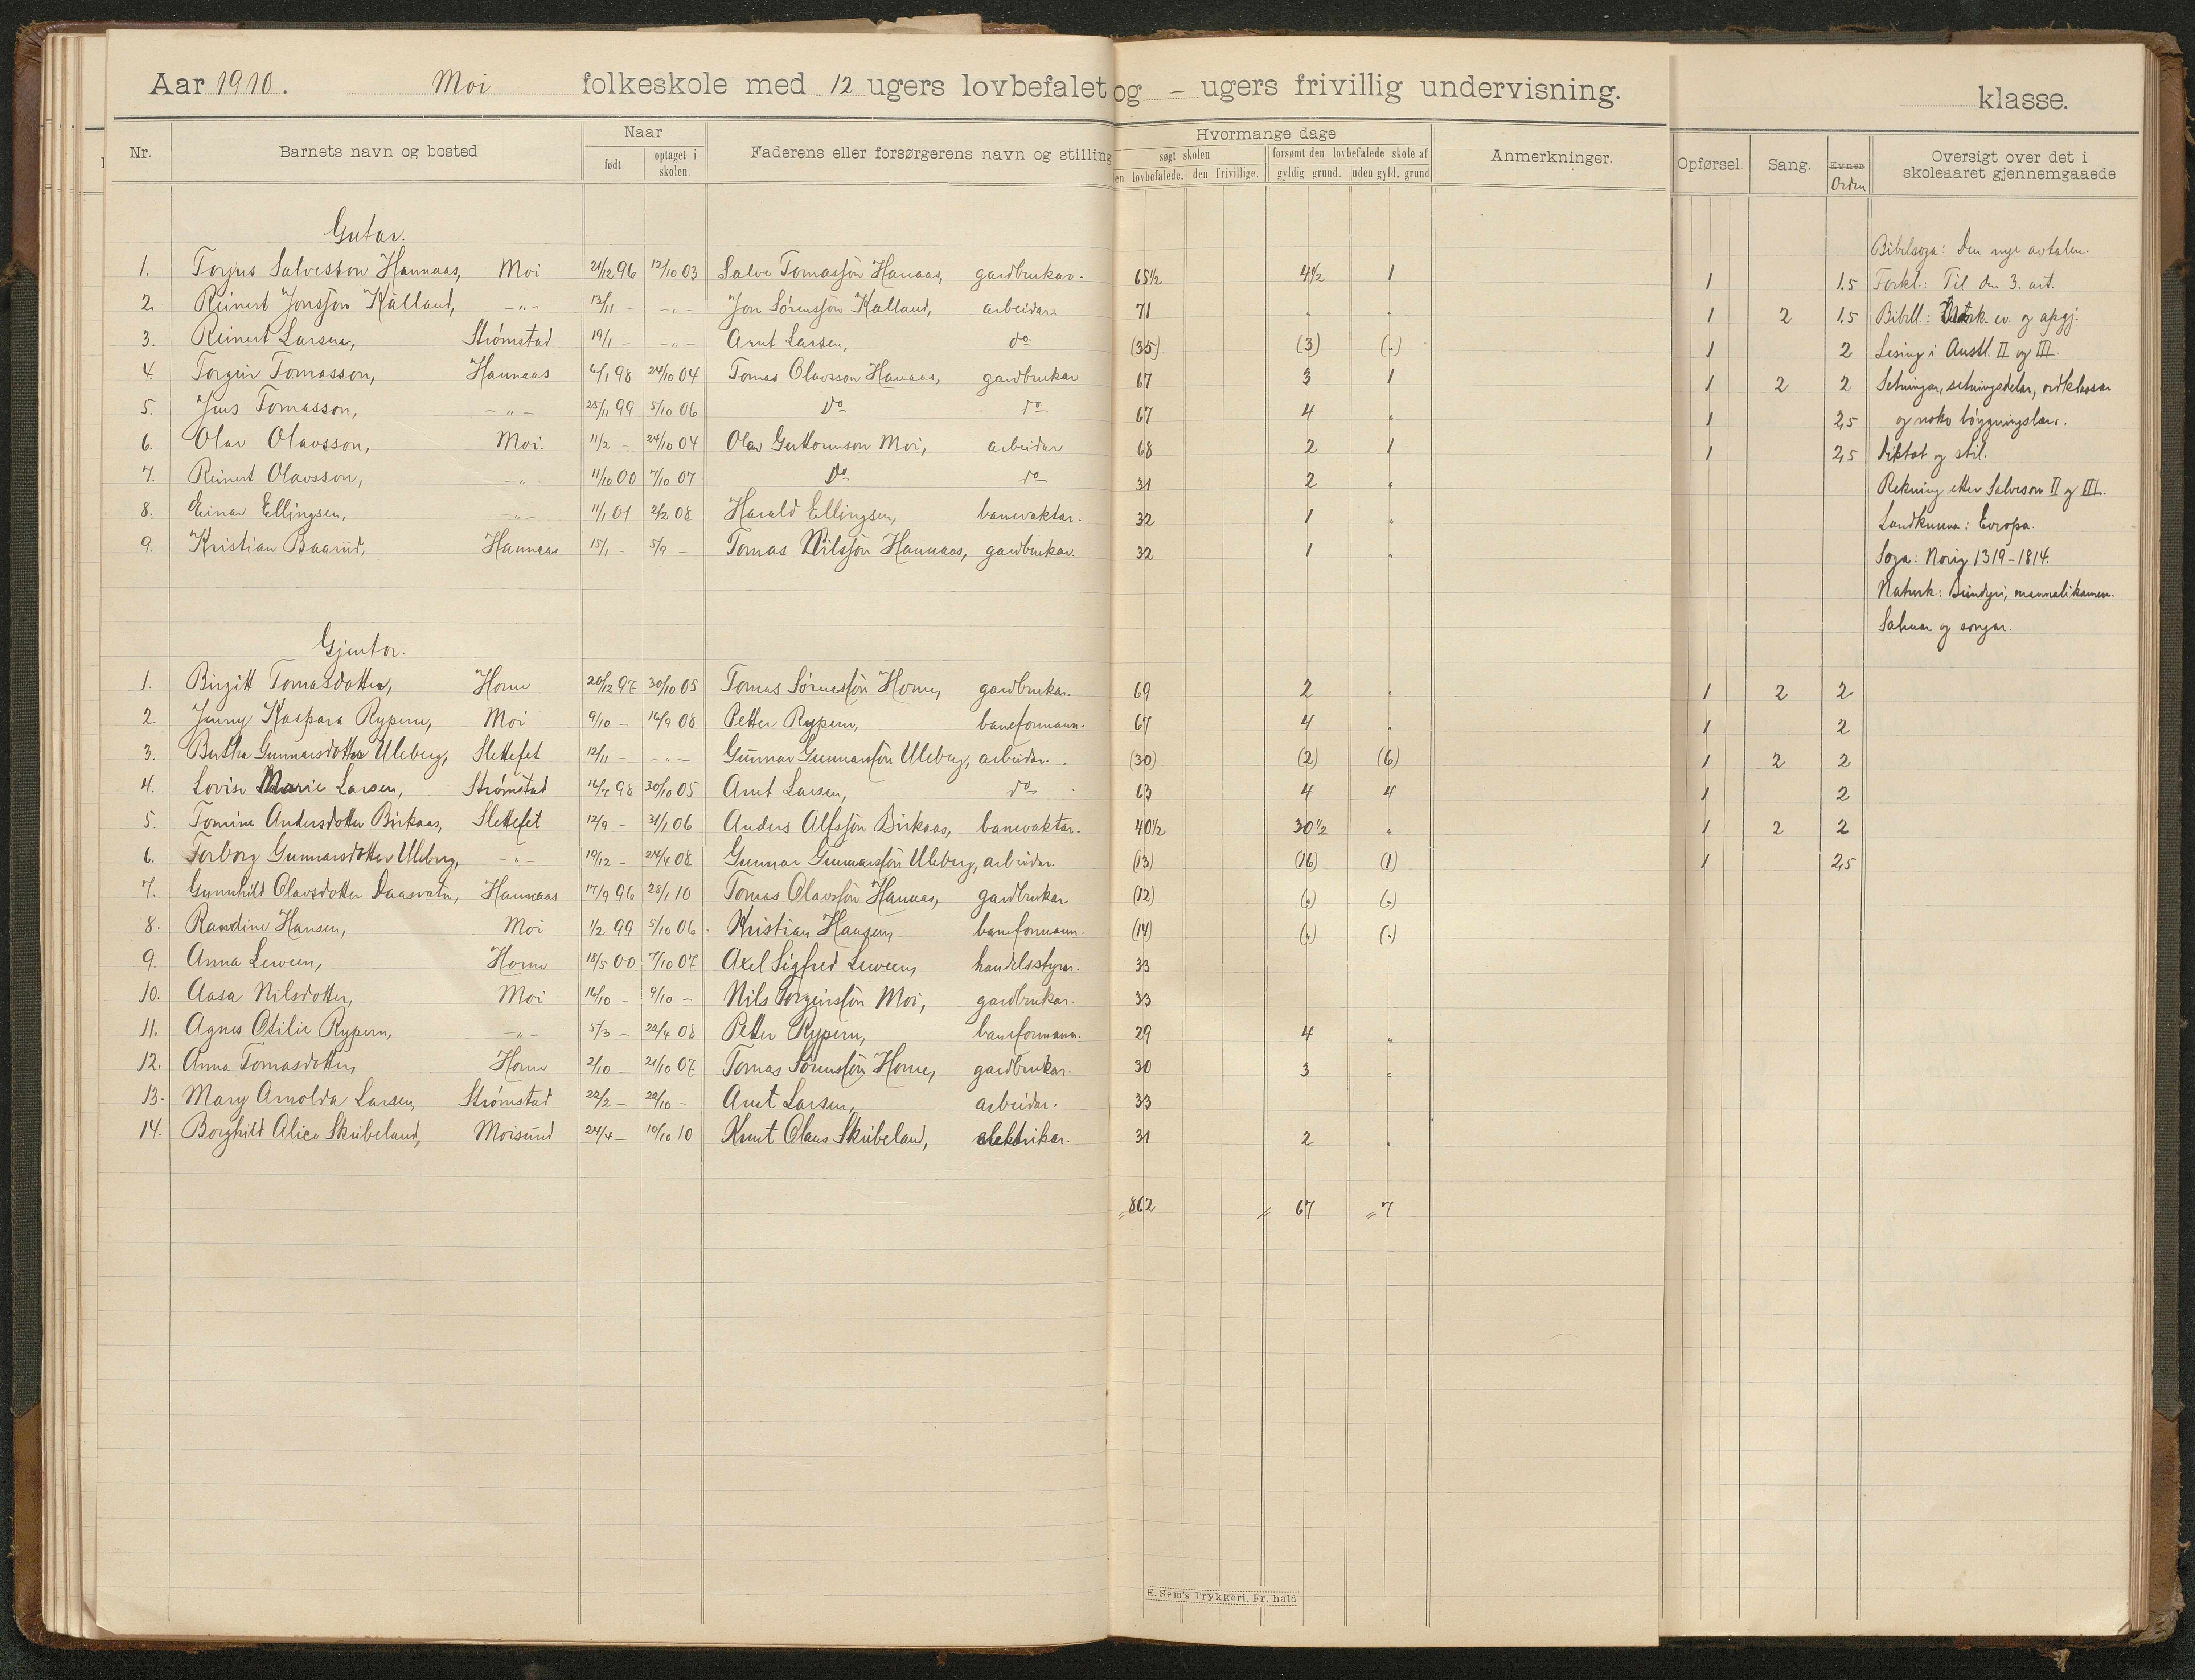 Aar 1910. Moi folkeskole med 12 ugers lovbefalet og – ugers frivillig undervisning. klasse.
Nr. Barnets navn og bosted Naar født optaget i skolen. Faderens eller forsørgerens navn og stilling Hvormange dage søgt skolen en lovbefalede. den frivillige. forsømt den lovbefalede skole af gyldig grund. uden gyld. grund Anmerkninger. Opførsel. Sang. Evner Orden Oversigt over det i skoleaaret gjennemgaaede
Gutar.
Bibelsoga: Den nye avtalen.
1. Torjus Salvesson Hannaas, Moi 21/12 96 12/10 03 Salve Tomassøn Hanaas, gardbrukar. 65½ 4½ 1 1 1.5 Forkl.: Til den 3. art.
2. Reinert Jonssøn Kalland, -"- 13/11 - -"- Jon Sørenssøn Kalland, arbeidar 71 . . 1 2 1.5 Bibell: Mark. ev. og apgj.
3. Reinert Larsen, Strømstad 19/1 - -"- Arnt Larsen, do (35) (3) (.) 1 2 Lesing i Austl. II og III.
4. Torgeir Tomasson, Hannaas 6/1 98 24/10 04 Tomas Olavsson Hanaas, gardbrukar 67 3 1 1 2 2 Setningar, setningsdelar, ordklassar
5. Jens Tomasson, -"- 25/1 99 5/10 06 Do do 67 4 . 1 2,5 og noko bøygningslære.
6. Olav Olavsson, Moi. 11/2 - 24/10 04 Olav Guttormson Moi, arbeidar 68 2 1 1 2,5 Diktat og stil.
7. Reinert Olavsson, -"- 11/10 00 7/10 07 Do do 31 2 . Rekning etter Salveson II og III.
8. Einar Ellingsen, -"- 11/1 01 2/2 08 Harald Ellingsen, banevaktar. 32 1 . Landkunna: Evropa.
9. Kristian Baarud, Hannaas 15/1 - 5/9 - Tomas Nilssøn Hannaas, gardbrukar. 32 1 . Soga: Norig 1319–1814.
Naturk: mannalikamen.
Gjentor.
Salmar og songar.
1. Birgitt Tomasdotter, Horne 20/12 97 30/10 05 Tomas Sørenssøn Horne, gardbrukar. 69 2 . 1 2 2
2. Jenny Kaspara Rypern, Moi 9/10 - 16/9 08 Petter Rypern, baneformann. 67 4 . 1 2
3. Bertha Gunnarsdotter Uleberg, Slettefet 12/11 - -"- Gunnar Gunnarssøn Uleberg, arbeidar. (30) (2) (6) 1 2 2
4. Lovise Marie Larsen, Strømstad 16/7 98 30/10 05 Arnt Larsen, do 63 4 4 1 2
5. Tomine Andersdotter Birkaas, Slettefet 12/9 - 31/1 06 Anders Alfssøn Birkaas, banevaktar. 40½ 30½ . 1 2 2
6. Torborg Gunnarsdotter Uleberg, -"- 19/12 - 24/4 08 Gunnar Gunnarssøn Uleberg, arbeidar. (13) (16) (1) 1 2,5
7. Gunnhild Olavsdotter Daasvatn, Hannaas 17/9 96 28/1 10 Tomas Olavssøn Hanaas, gardbrukar (12) (.) (.)
8. Randine Hansen, Moi 1/2 99 5/10 06 Kristian Hansen, baneformann. (14) (.) (.)
9. Anna Leween, Horne 18/5 00 7/10 07 Axel Sigfred Leween, handelsstyrar. 33
10. Aasa Nilsdotter, Moi 16/10 - 9/10 - Nils Torgeirssøn Moi, gardbrukar. 33
11. Agnes Otilie Rypern, -"- 5/3 - 22/4 08 Petter Rypern, baneformann. 29 4 .
12. Anna Tomasdotter, Horne 2/10 - 21/10 07 Tomas Sørenssøn Horne, gardbrukar. 30 3 .
13. Mary Arnolda Larsen, Strømstad 22/2 - 22/10 - Arnt Larsen, arbeidar. 33 .
14. Borghild Alice Skribeland, Moisund 24/4 - 10/10 10 Knut Olaus Skribeland, elektrikar. 31 2 .
= 862 = 67 = 7
E. Sem's Trykkeri, Fr. hald